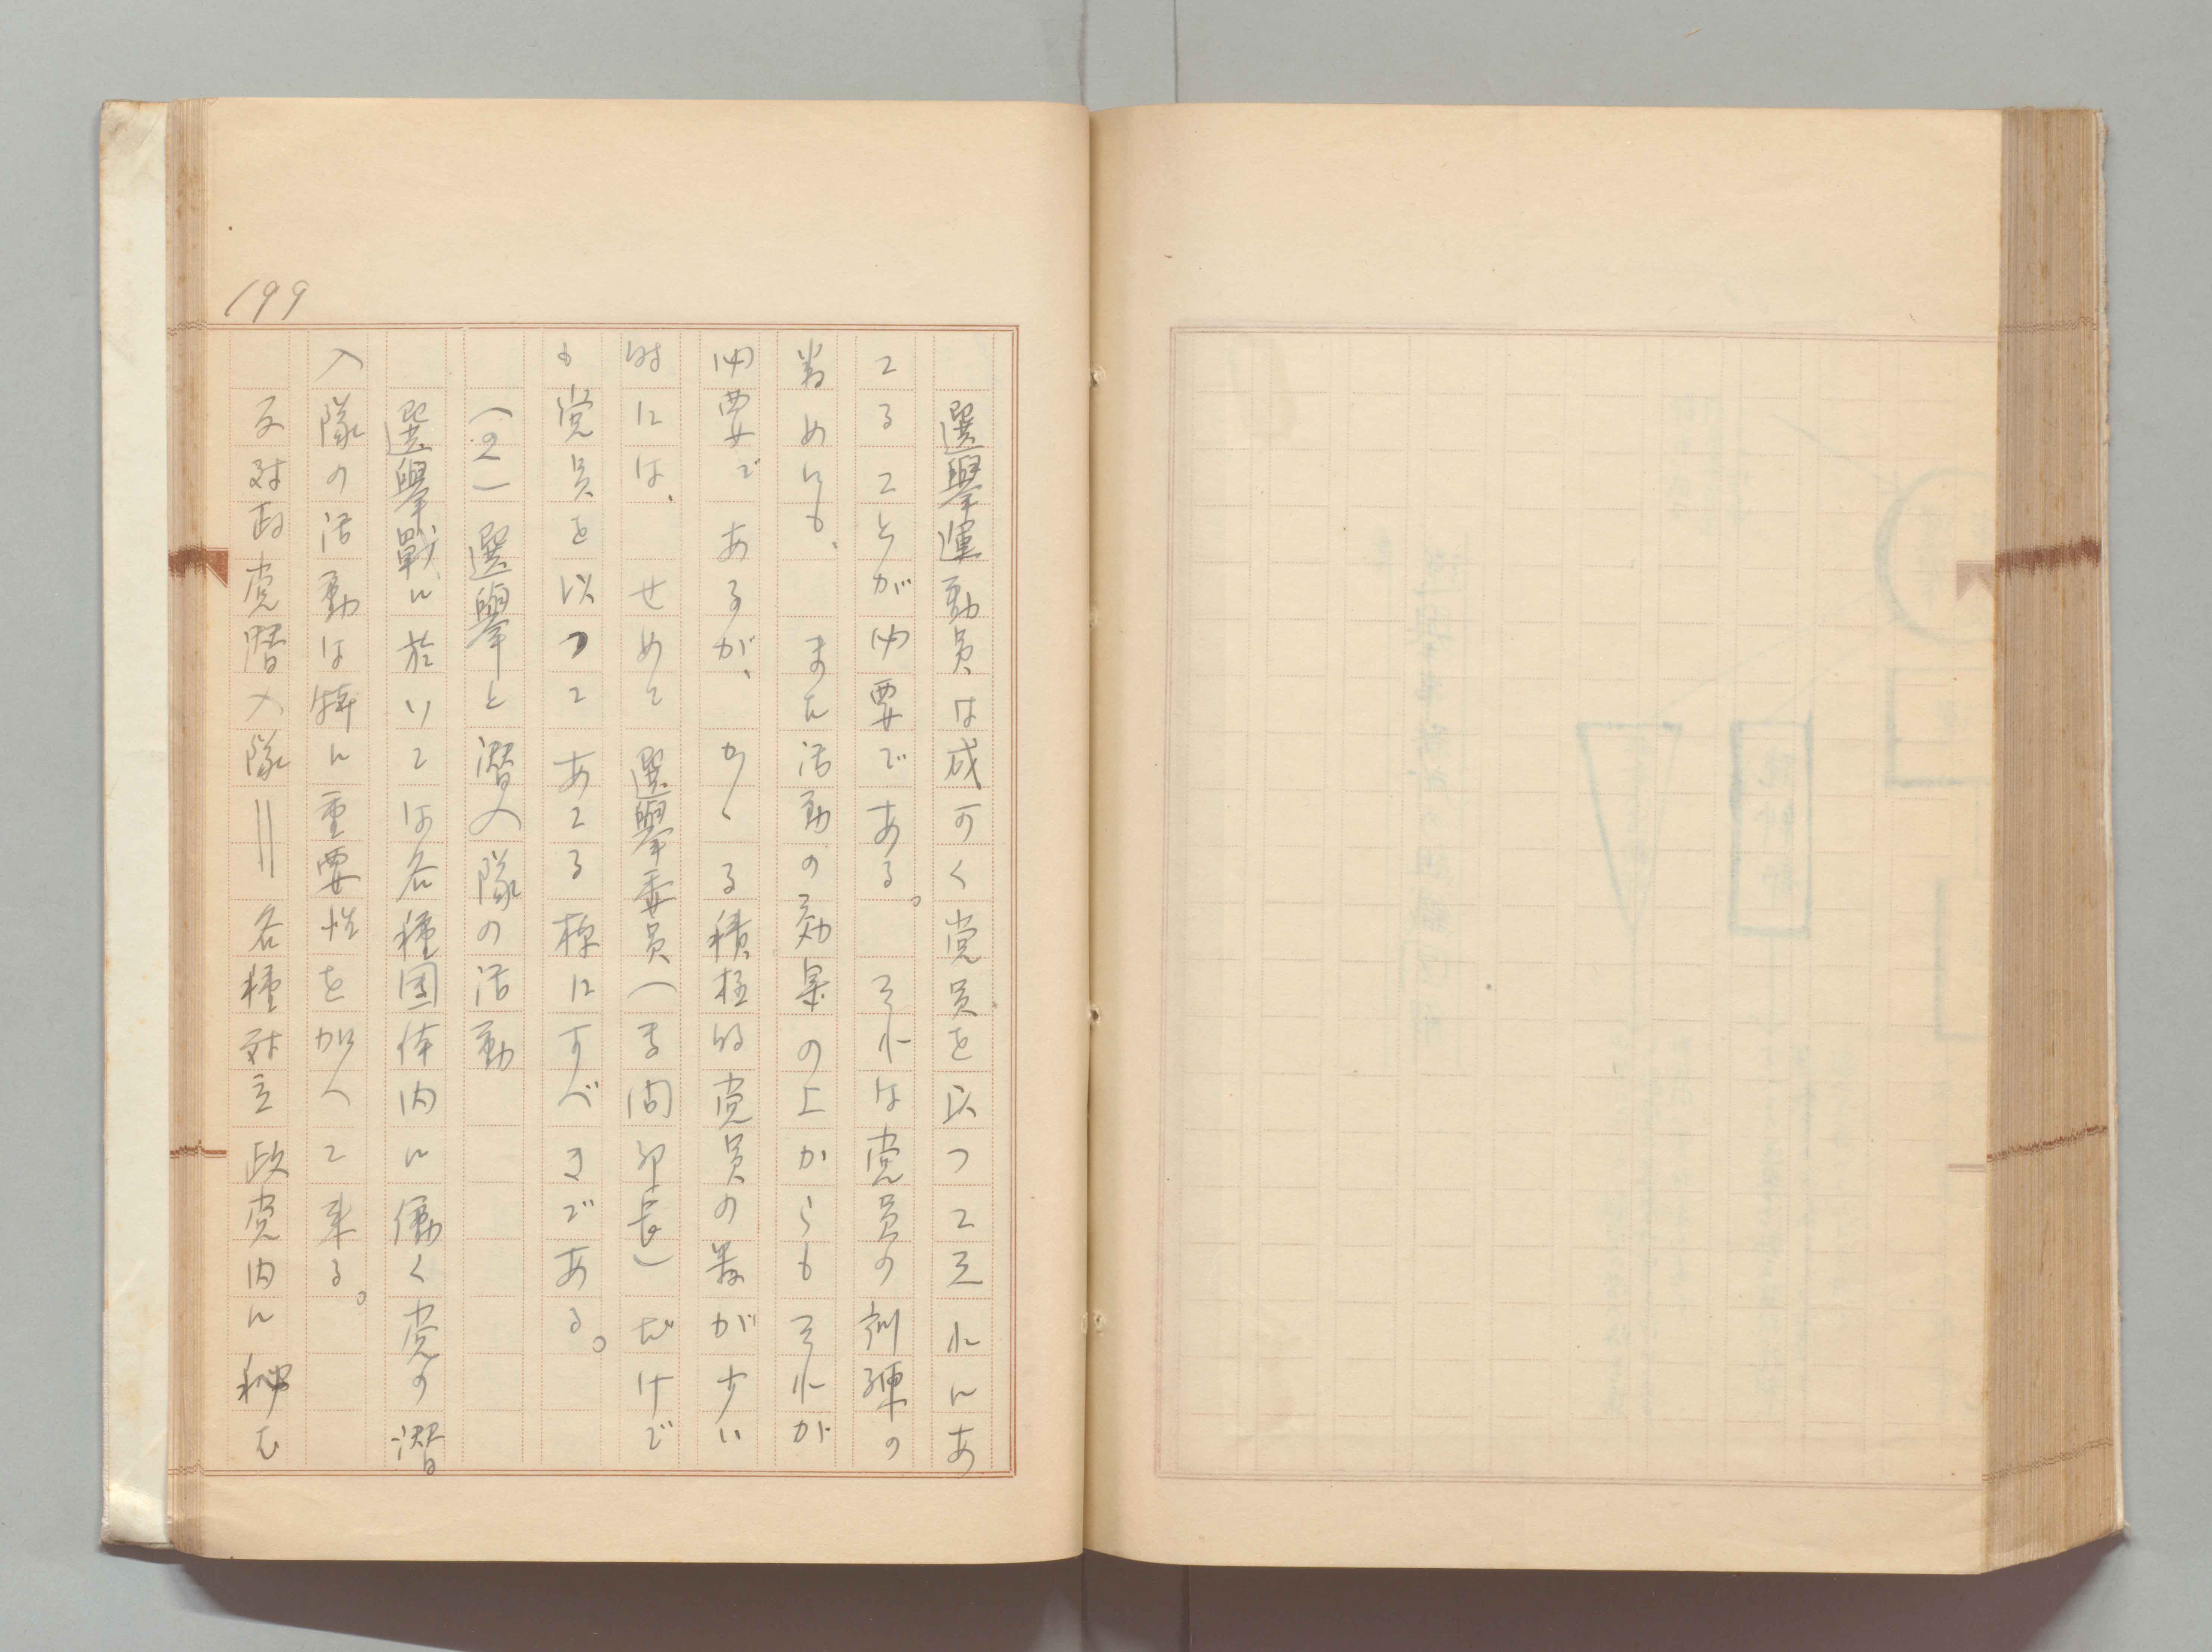 199
選擧運動員は成可く党員を以つて之れにあ
てることが必要である。それは党員の訓練の
爲めにも、また活動の効果の上からもそれが
必要であるが、かゝる積極的党員の数が少い
時には、せめて選擧委員(專問部長)だけで
も党員を以つてあてる様にすべきである。
(2)選擧と潜入隊の活動
選擧戰に於いては各種団体内に働く党の潜
入隊の活動は特に重要性を加へて来る。
反対政党潜入隊=各種対立政党内に秘む